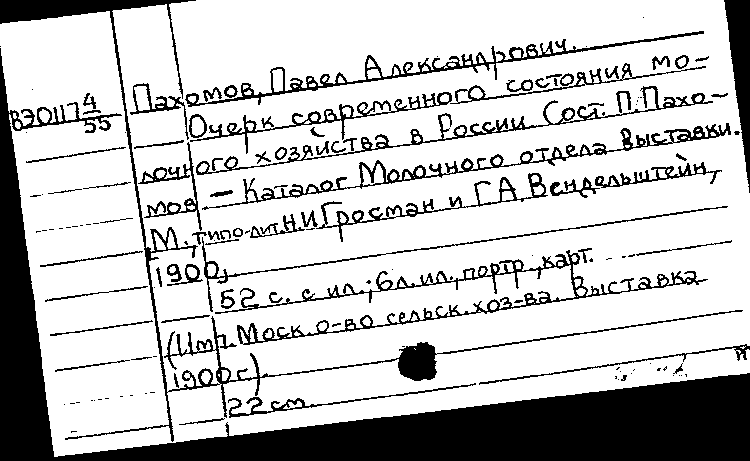 Пахомов, Павел Александрович.
ВЭ0117 4/55
Очерк современного состояния мо-
лочного хозяйства в России. Сост. П. Пахо-
мов — Каталог Молочного отдела выставки.
М., типо-лит. Н.И Гросман и Г.А. Вендельштейн,
1900,
52 с. с ил.; 6 л. ил., портр., карт.
(Имп. Моск. о-во сельск. хоз-ва. Выставка
1900 г.).
22 см.